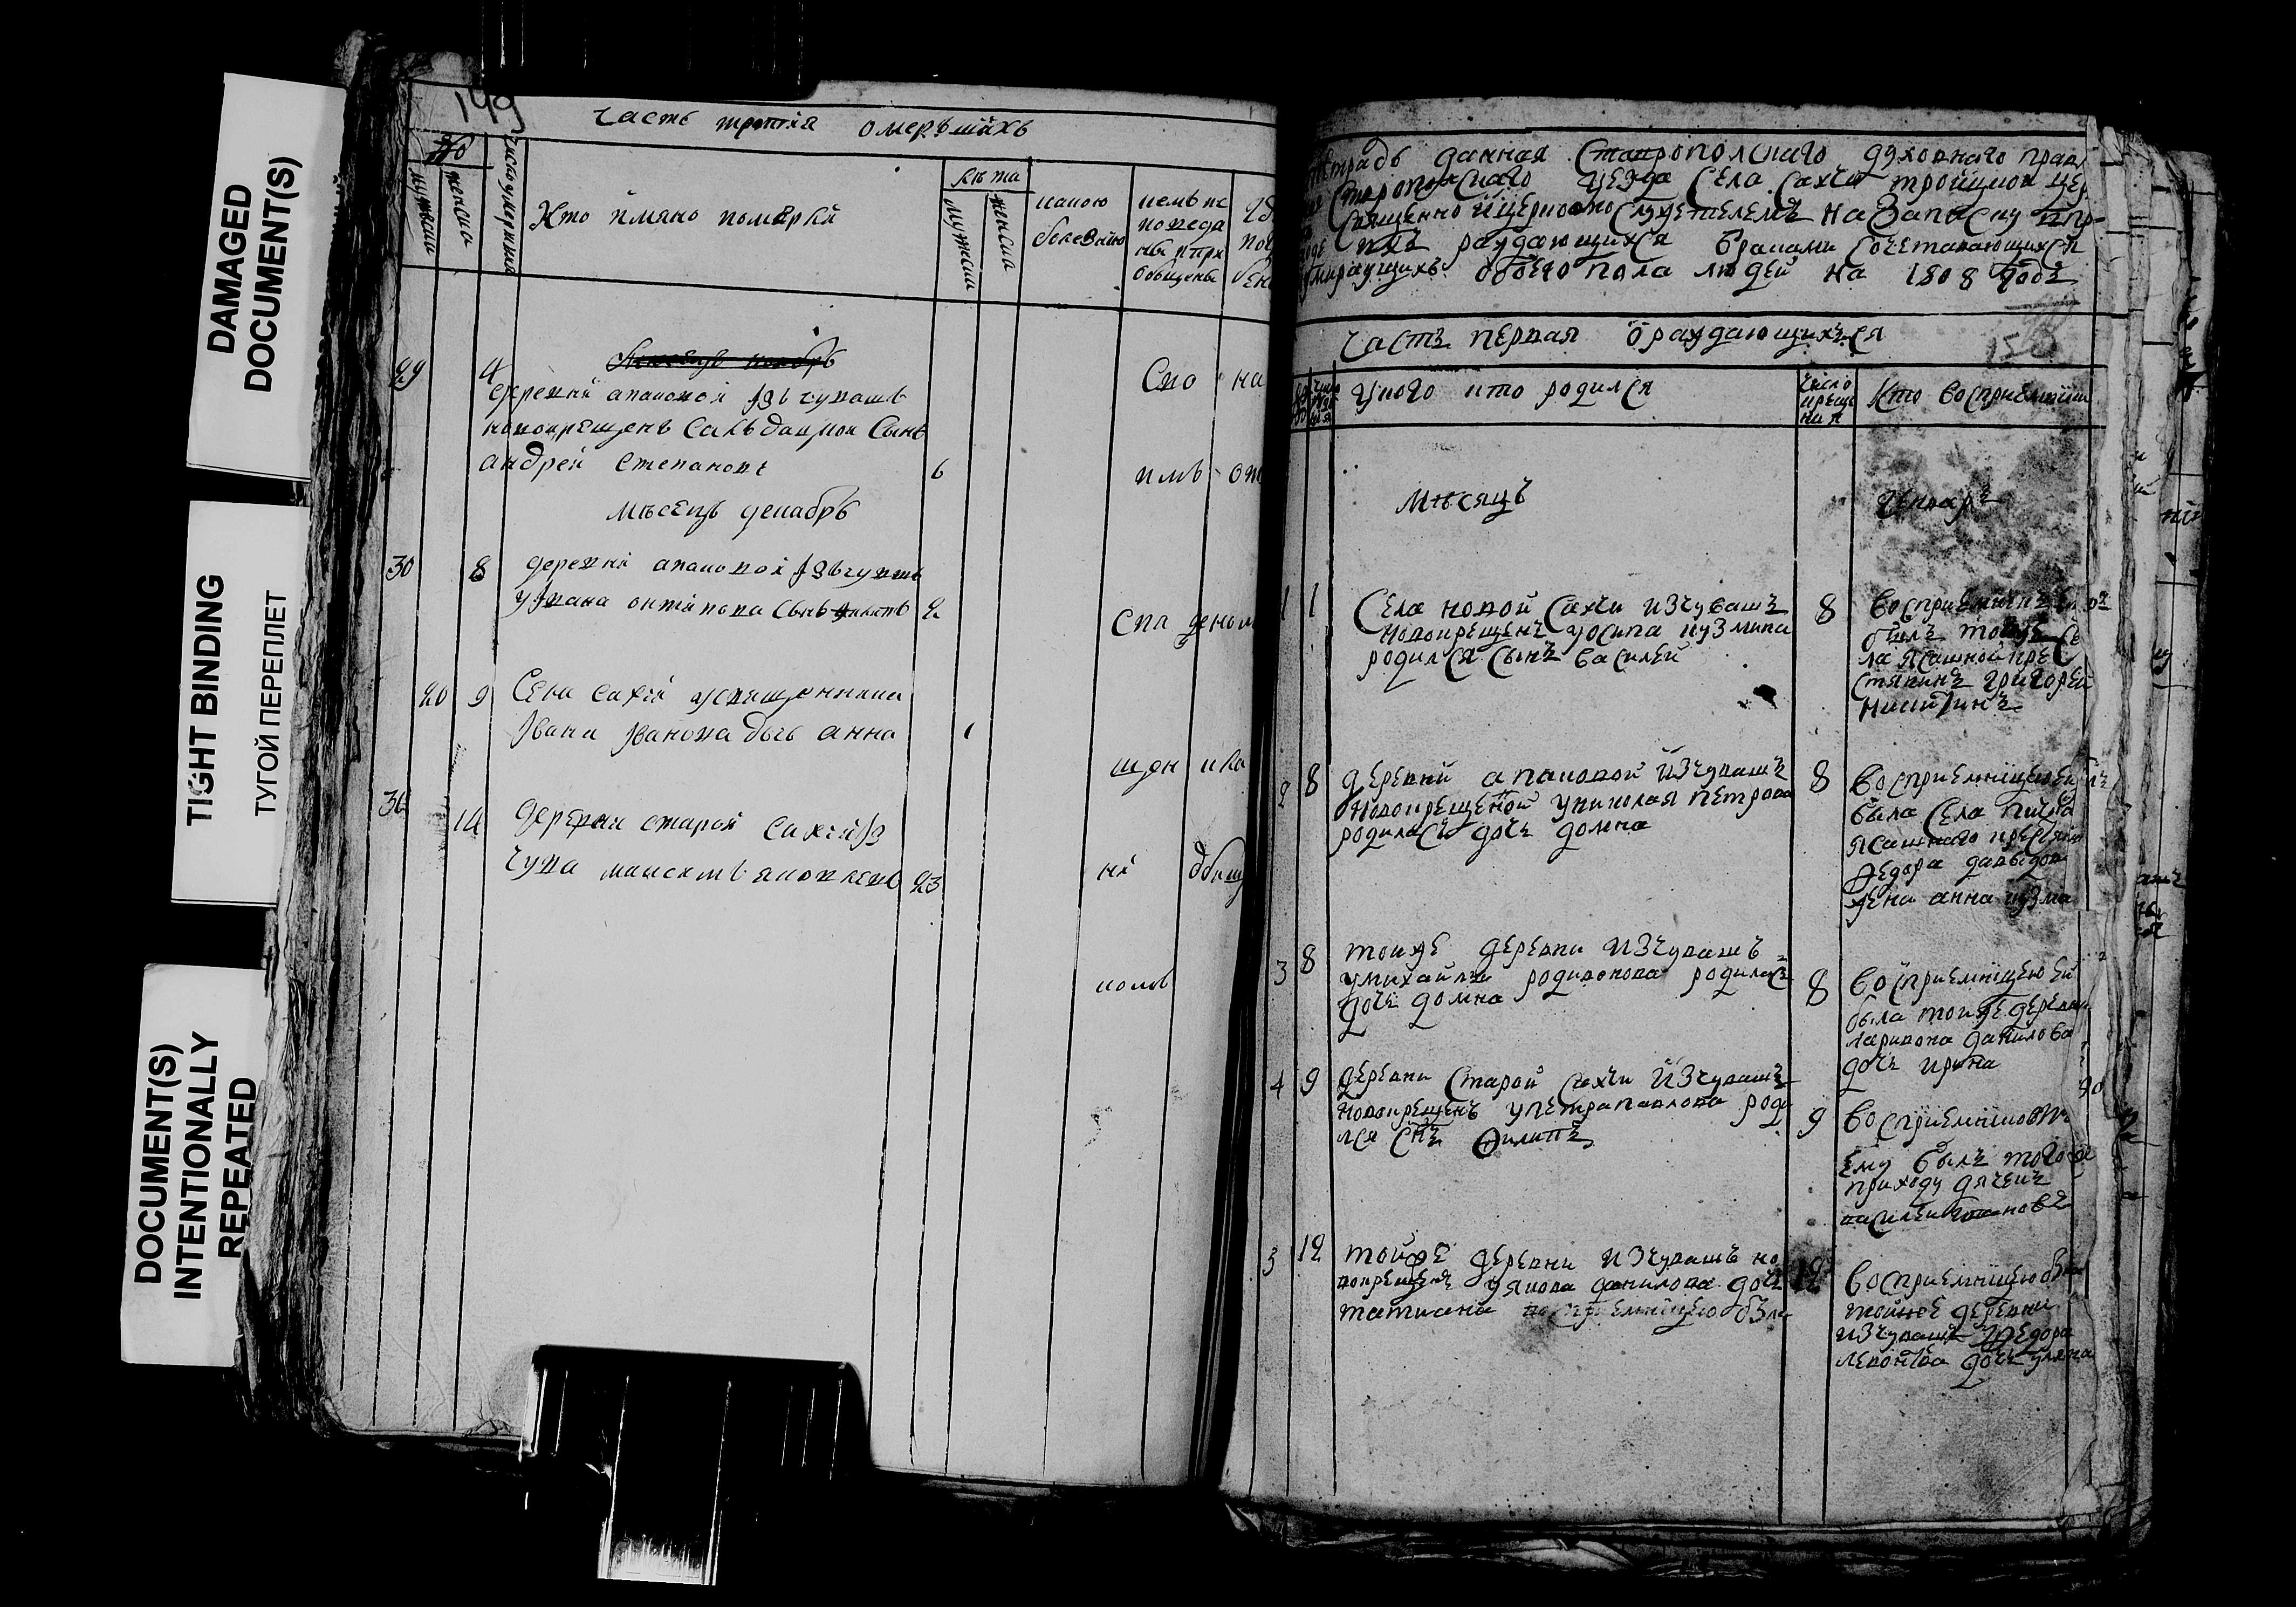 DAMAGED
DOCUMENT(S)
TIGHT BINDING
ТУГОЙ ПЕРЕПЛЕТ
DOCUMENT(S)
INTENTIONALLY
REPEATED
149
часть третия омершихъ
мужска
женска
число умертвия
Кто имяно померли
лѣта
мужска
женска
какою
болезнию
кемъ ис
поведа
ны и при
общены
29 4
деревни апаковой изъ чувашъ
новокрещенъ сынъ
андрей степановъ 6
мѣсецъ декабръ
30 8 деревни апаковой изъ чувашъ
антипова сынъ 2
20 9 Села сахчи у священника
Ивана Иванова дочь анна 1
14 деревни старой сахчи из
чува максимъ яковлевъ 23
Спо на
имъ
спа
щен ика
ни
комъ
тетрадь данная Ставрополскаго духовнаго прав
Ставрополскаго уезда Села Сахчи троицкой цер
Священно и церковно служителемъ на Записку
раждающихся браками Сочетавающихся
умирающихъ обоего пола людей на 1808 годъ
Часть первая о раждающихъся
150
У кого кто родился
число
крещe
ния
Кто восприемники
мѣсяцъ
Генварь
1 1 Села новой Сахчи из чувашъ 8
новокрещенъ у осипа кузмина
родился сынъ василей
восприемникъ
былъ тогожъ Се
ла ясашной кре
стянинъ григорей
никитинъ
2 8 деревни апаковой из чувашъ 8
новокрещеной у николая петрова
родилась дочь домна
восприемницею ей
была Села
ясашнаго крестяни
Федора давыдов
жена анна кузма
3 8 тоиже деревни из чувашъ 8
у михайлы родивонова родилась
дочь домна
восприемницею ей
была тоиже деревни
лариона данилова
дочь ирина
4 9 деревни Старой Сахчи из чувашъ 9
новокрещенъ у петра павлова роди
лся снъ Филипъ
восприемникомъ
ему былъ того же
приходу дячекъ
василей
12 тойже деревни из чувашъ но 12
вокрещенъ у якова данилова дочь
татиана
восприемницею
тойже деревни
из чувашъ Федора
леонтева дочь уляна